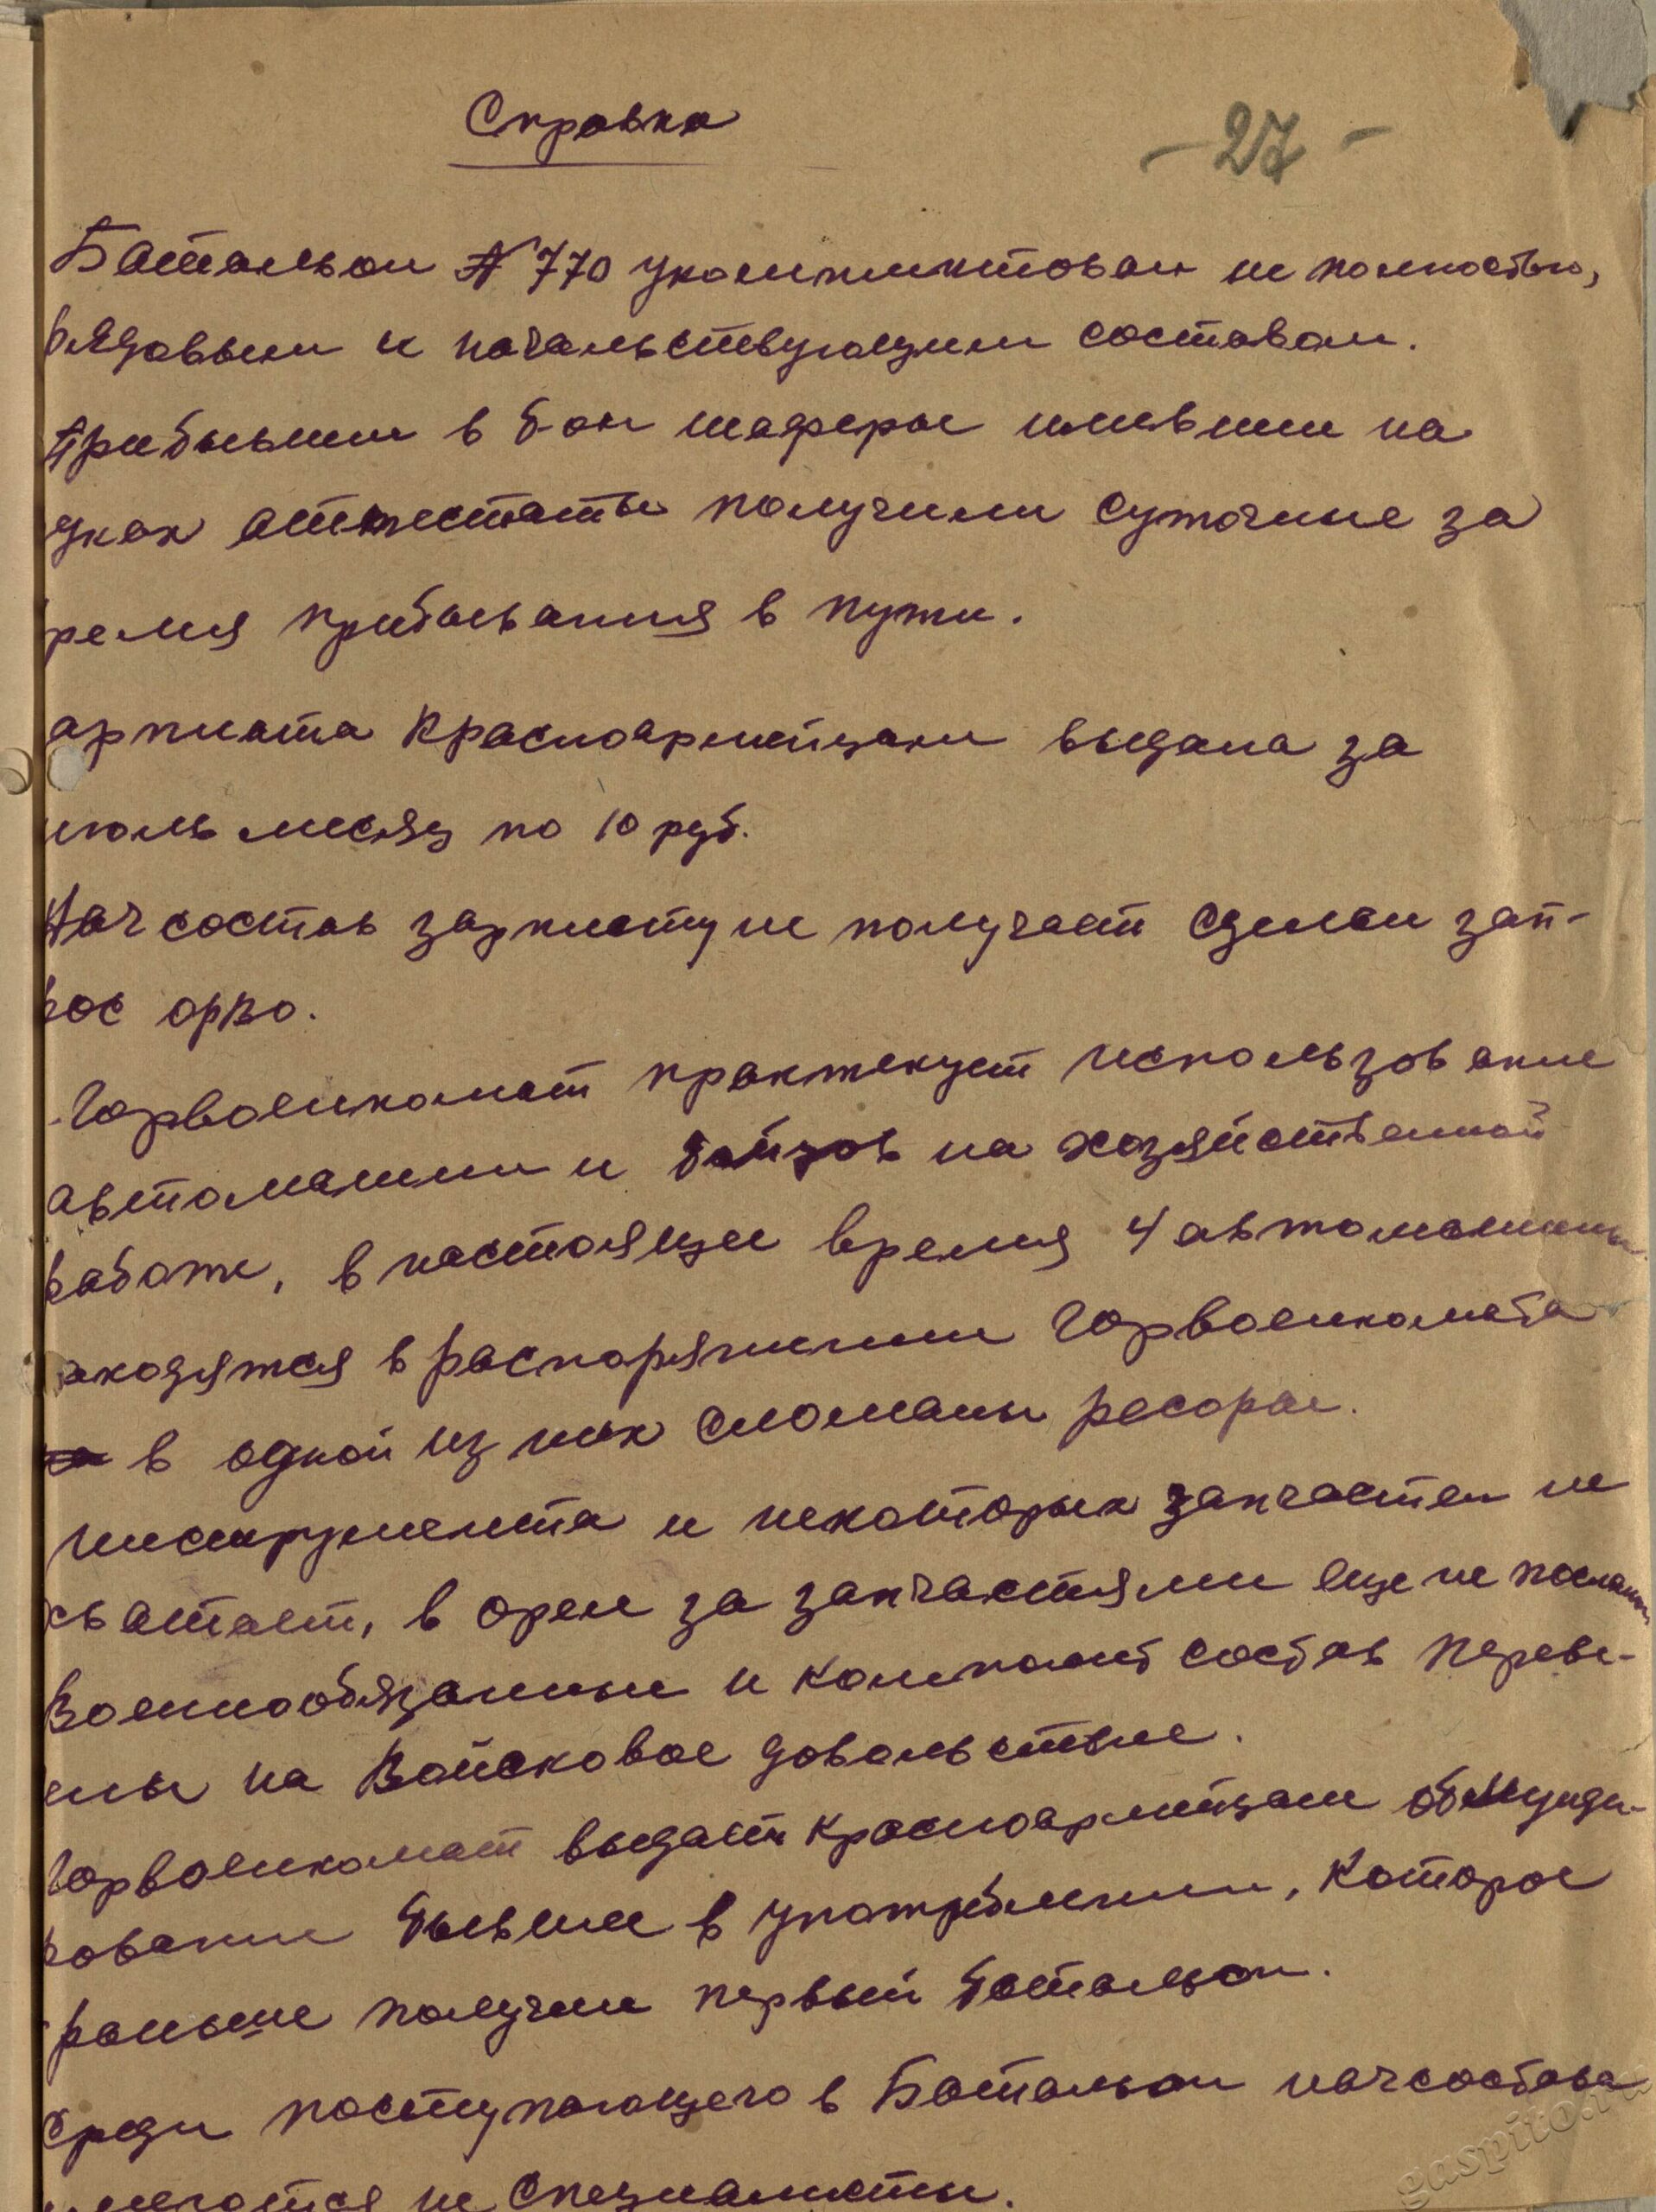 Справка
- 27 -
Батальон № 770 укомплектован не полностью,
рядовым и начальствующим составом.
Прибывшии в б-он шоферы имевшии на
руках аттестаты получили суточные за
ремя прибывания в пути.
арплата красноармейцам выдана за
июль месяц по 10 руб.
Нач состав зарплату не получает сделан зап-
рос орво.
Горвоенкомат практикует использование
автомашин и бойцов на хозяйственной
работе, в настоящее время 4 автомашины
аходятся в распоряжении Горвоенкомата
в одной из них сломаны ресоры.
инструмента и некоторых запчастей не
хватает, в орел за запчастями еще не посланы
Военнообязанные и компол состав переве-
ены на Войсковое довольствие.
Горвоенкомат выдает красноармейцам обмунди-
рование бывшее в употреблении, которое
раньше получил первый батальон.
Среди поступающего в Батальон начсостава
имеются не специалисты.
gaspito.ru